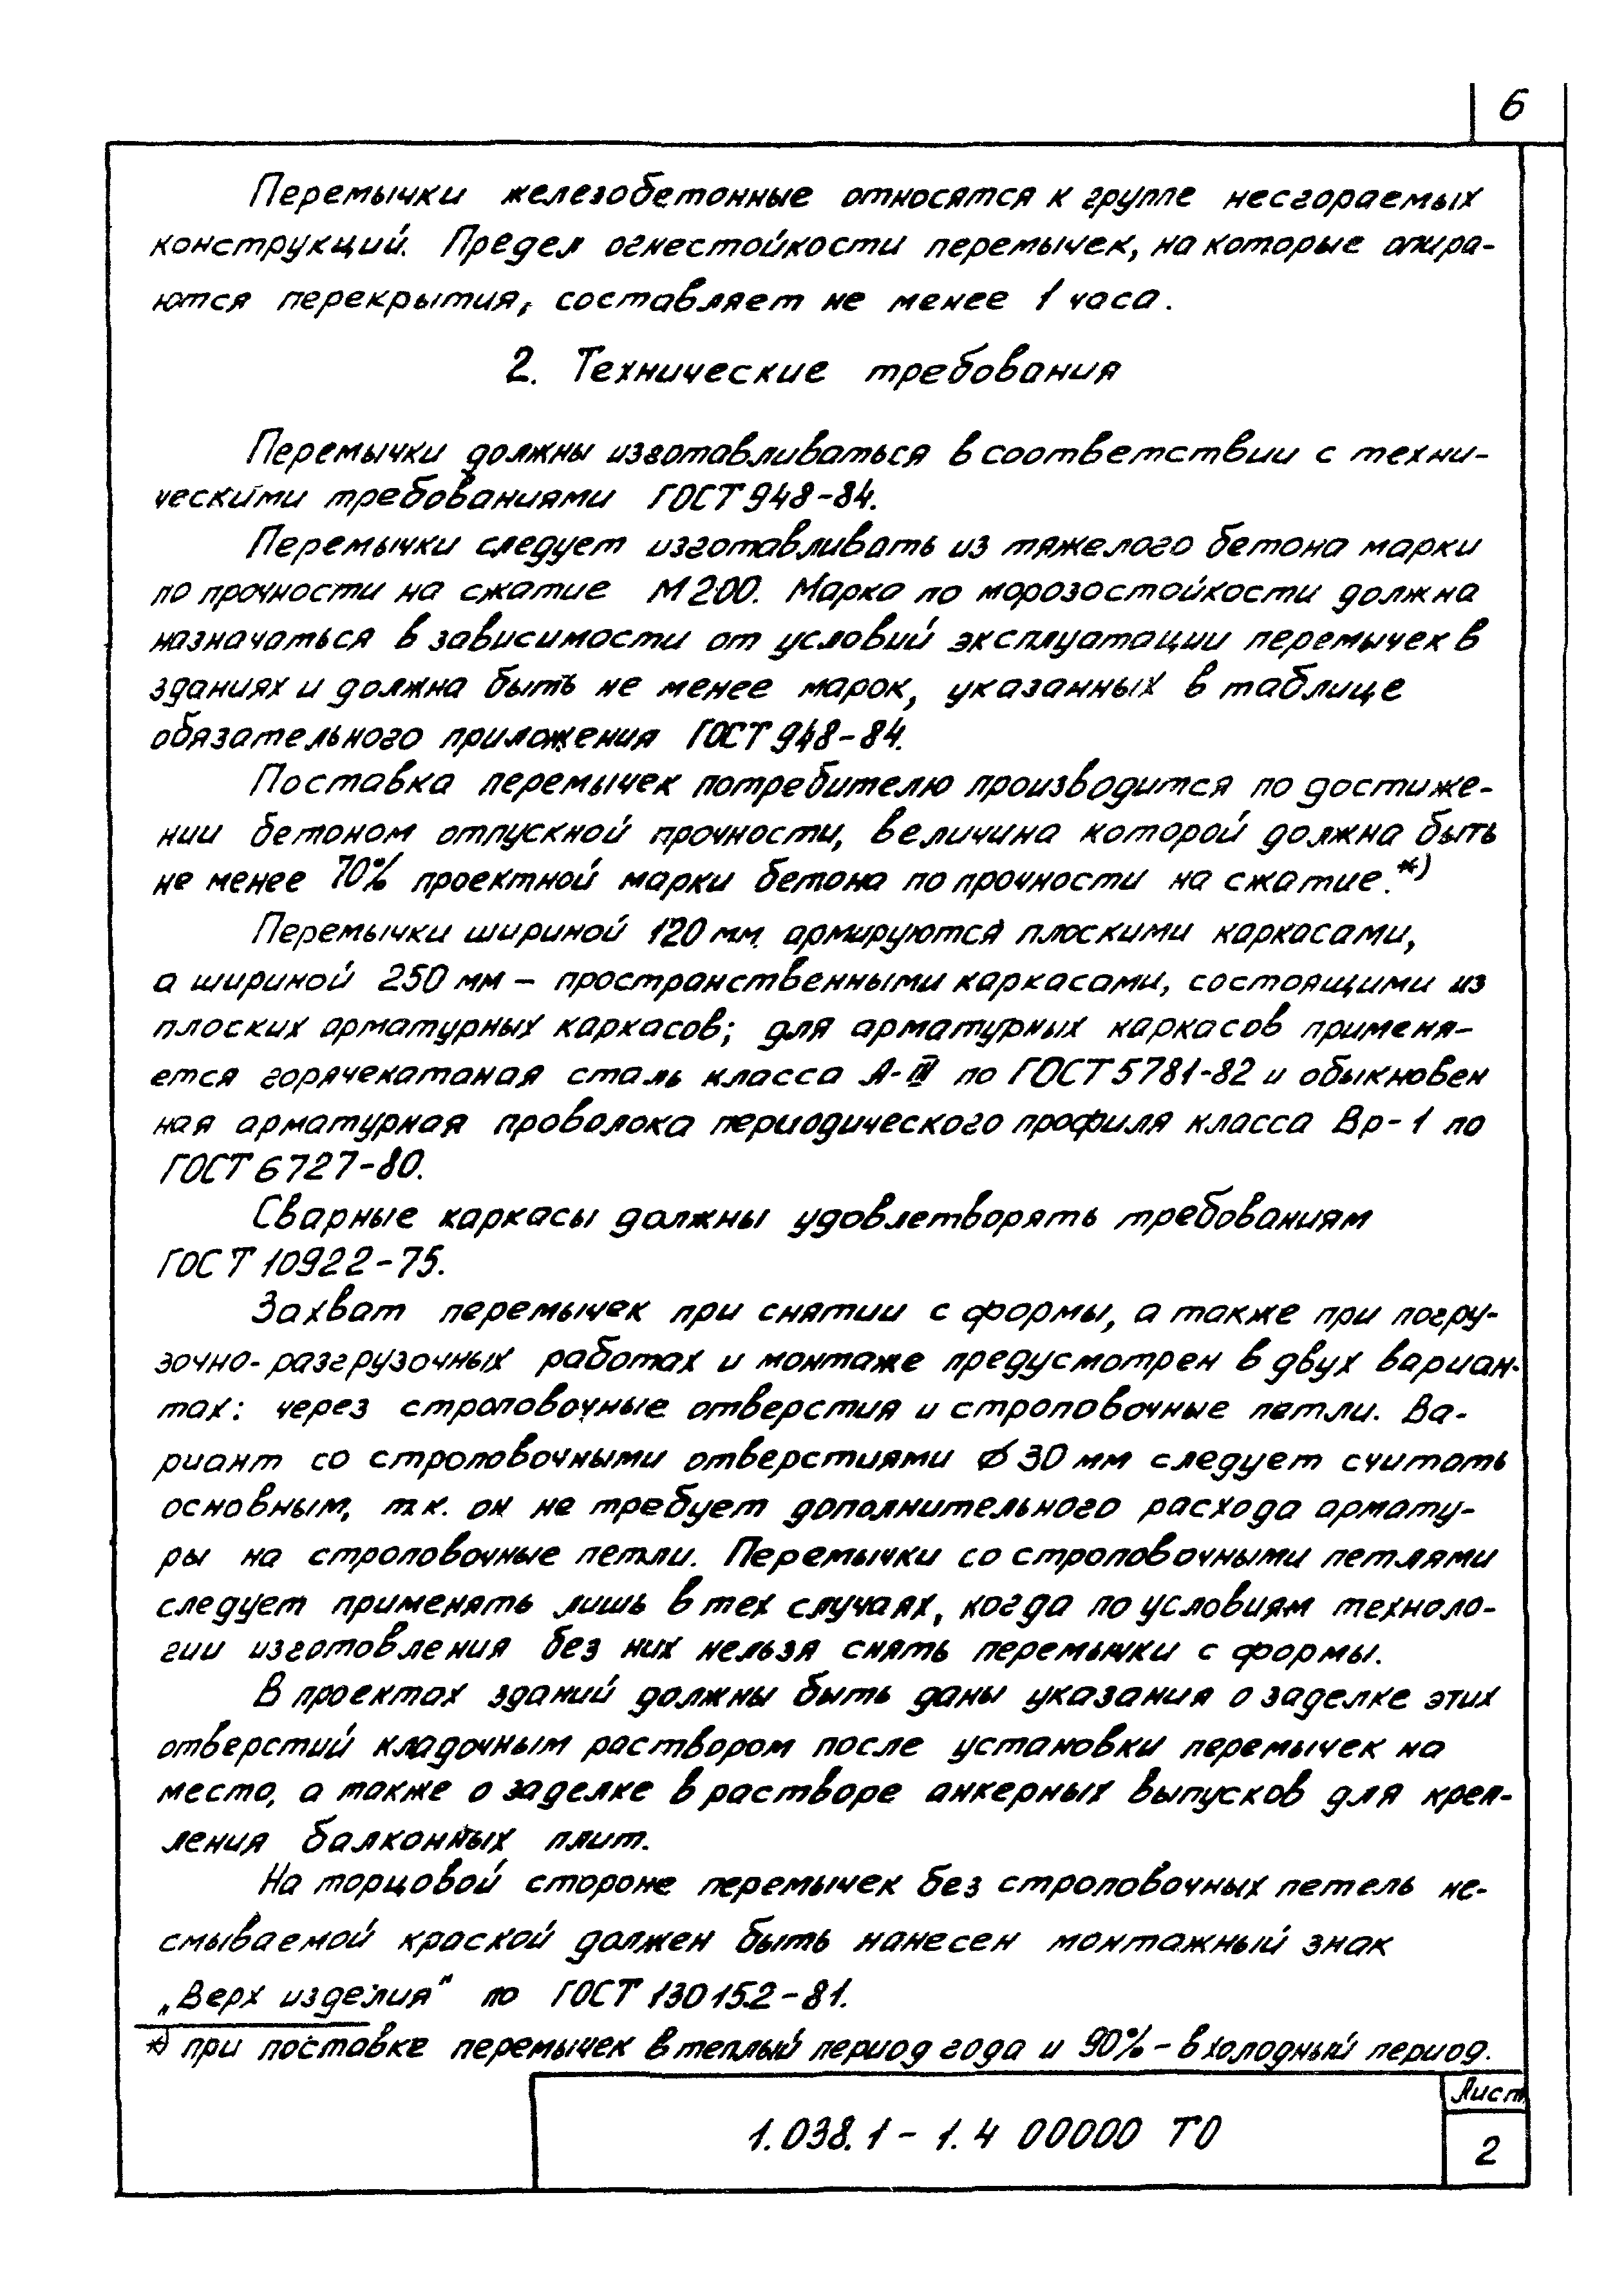 6
Перемычки железобетонные относятся к группе несгораемых
конструкций. Предел огнестойкости перемычек, на которые опира-
ются перекрытия, составляет не менее 1 часа.
2. Технические требования
Перемычки должны изготавливаться в соответствии с техни-
ческими требованиями ГОСТ 948-84.
Перемычки следует изготавливать из тяжелого бетона марки
по прочности на сжатие М200. Марка по морозостойкости должна
назначаться в зависимости от условий эксплуатации перемычек в
зданиях и должна быть не менее марок, указанных в таблице
обязательного приложения ГОСТ 948-84.
Поставка перемычек потребителю производится по достиже-
нии бетоном отпускной прочности, величина которой должна быть
не менее 70% проектной марки бетона по прочности на сжатие.*)
Перемычки шириной 120 мм. армируются плоскими каркасами,
а шириной 250 мм - пространственными каркасами, состоящими из
плоских арматурных каркасов; для арматурных каркасов применя-
ется горячекатаная сталь класса А-III по ГОСТ 5781-82 и обыкновен
ная арматурная проволока периодического профиля класса Вр-1 по
ГОСТ 6727-80.
Сварные каркасы должны удовлетворять требованиям
ГОСТ 10922-75.
Захват перемычек при снятии с формы, а также при погру-
зочно-разгрузочных работах и монтаже предусмотрен в двух вариан-
тах: через строповочные отверстия и строповочные петли. Ва-
риант со строповочными отверстиями ∅30 мм следует считать
основным, т.к. он не требует дополнительного расхода армату-
ры на строповочные петли. Перемычки со строповочными петлями
следует применять лишь в тех случаях, когда по условиям техноло-
гии изготовления без них нельзя снять перемычки с формы.
В проектах зданий должны быть даны указания о заделке этих
отверстий кладочным раствором после установки перемычек на
место, а также о заделке в растворе анкерных выпусков для креп-
ления балконных плит.
На торцовой стороне перемычек без строповочных петель не-
смываемой краской должен быть нанесен монтажный знак
„Верх изделия" по ГОСТ 13015.2-81.
*) при поставке перемычек в теплый период года и 90% - в холодный период.
Лист
1.038.1-1.4 00000 ТО
2